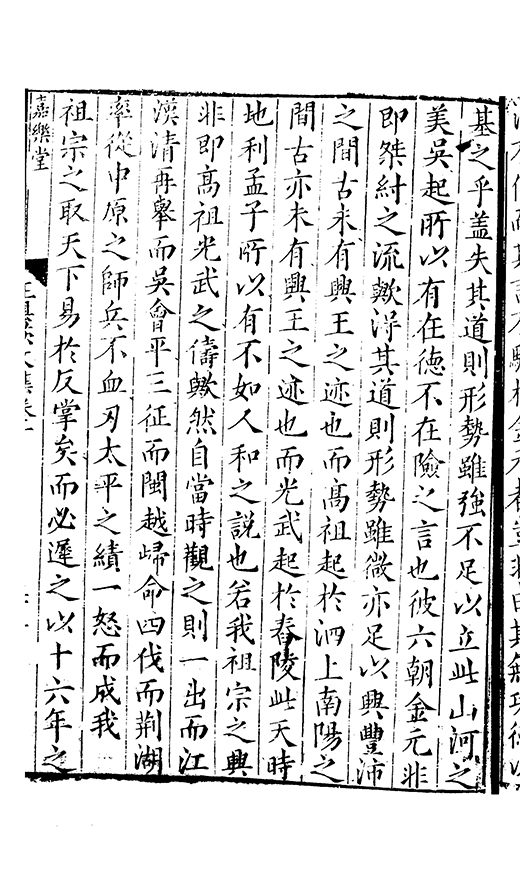 基之乎盖失其道則形勢雖強不足以立此山河之
美吳起所以有在德不在險之言也彼六朝金元非
即桀紂之流歟得其道則形勢雖微亦足以興豐沛
之間古未有興王之迹也而高祖起於泗上南陽之
間古亦未有興王之迹也而光武起於舂陵此天時
地利孟子所以有不如人和之說也若我祖宗之興
非即高祖光武之儔歟然自當時觀之則一出而江
漢清再舉而吳會平三征而閩越歸命四伐而荆湖
率從中原之師兵不血刃太平之績一怒而成我
祖宗之取天下易於反掌矣而必遲之以十六年之
嘉樂堂